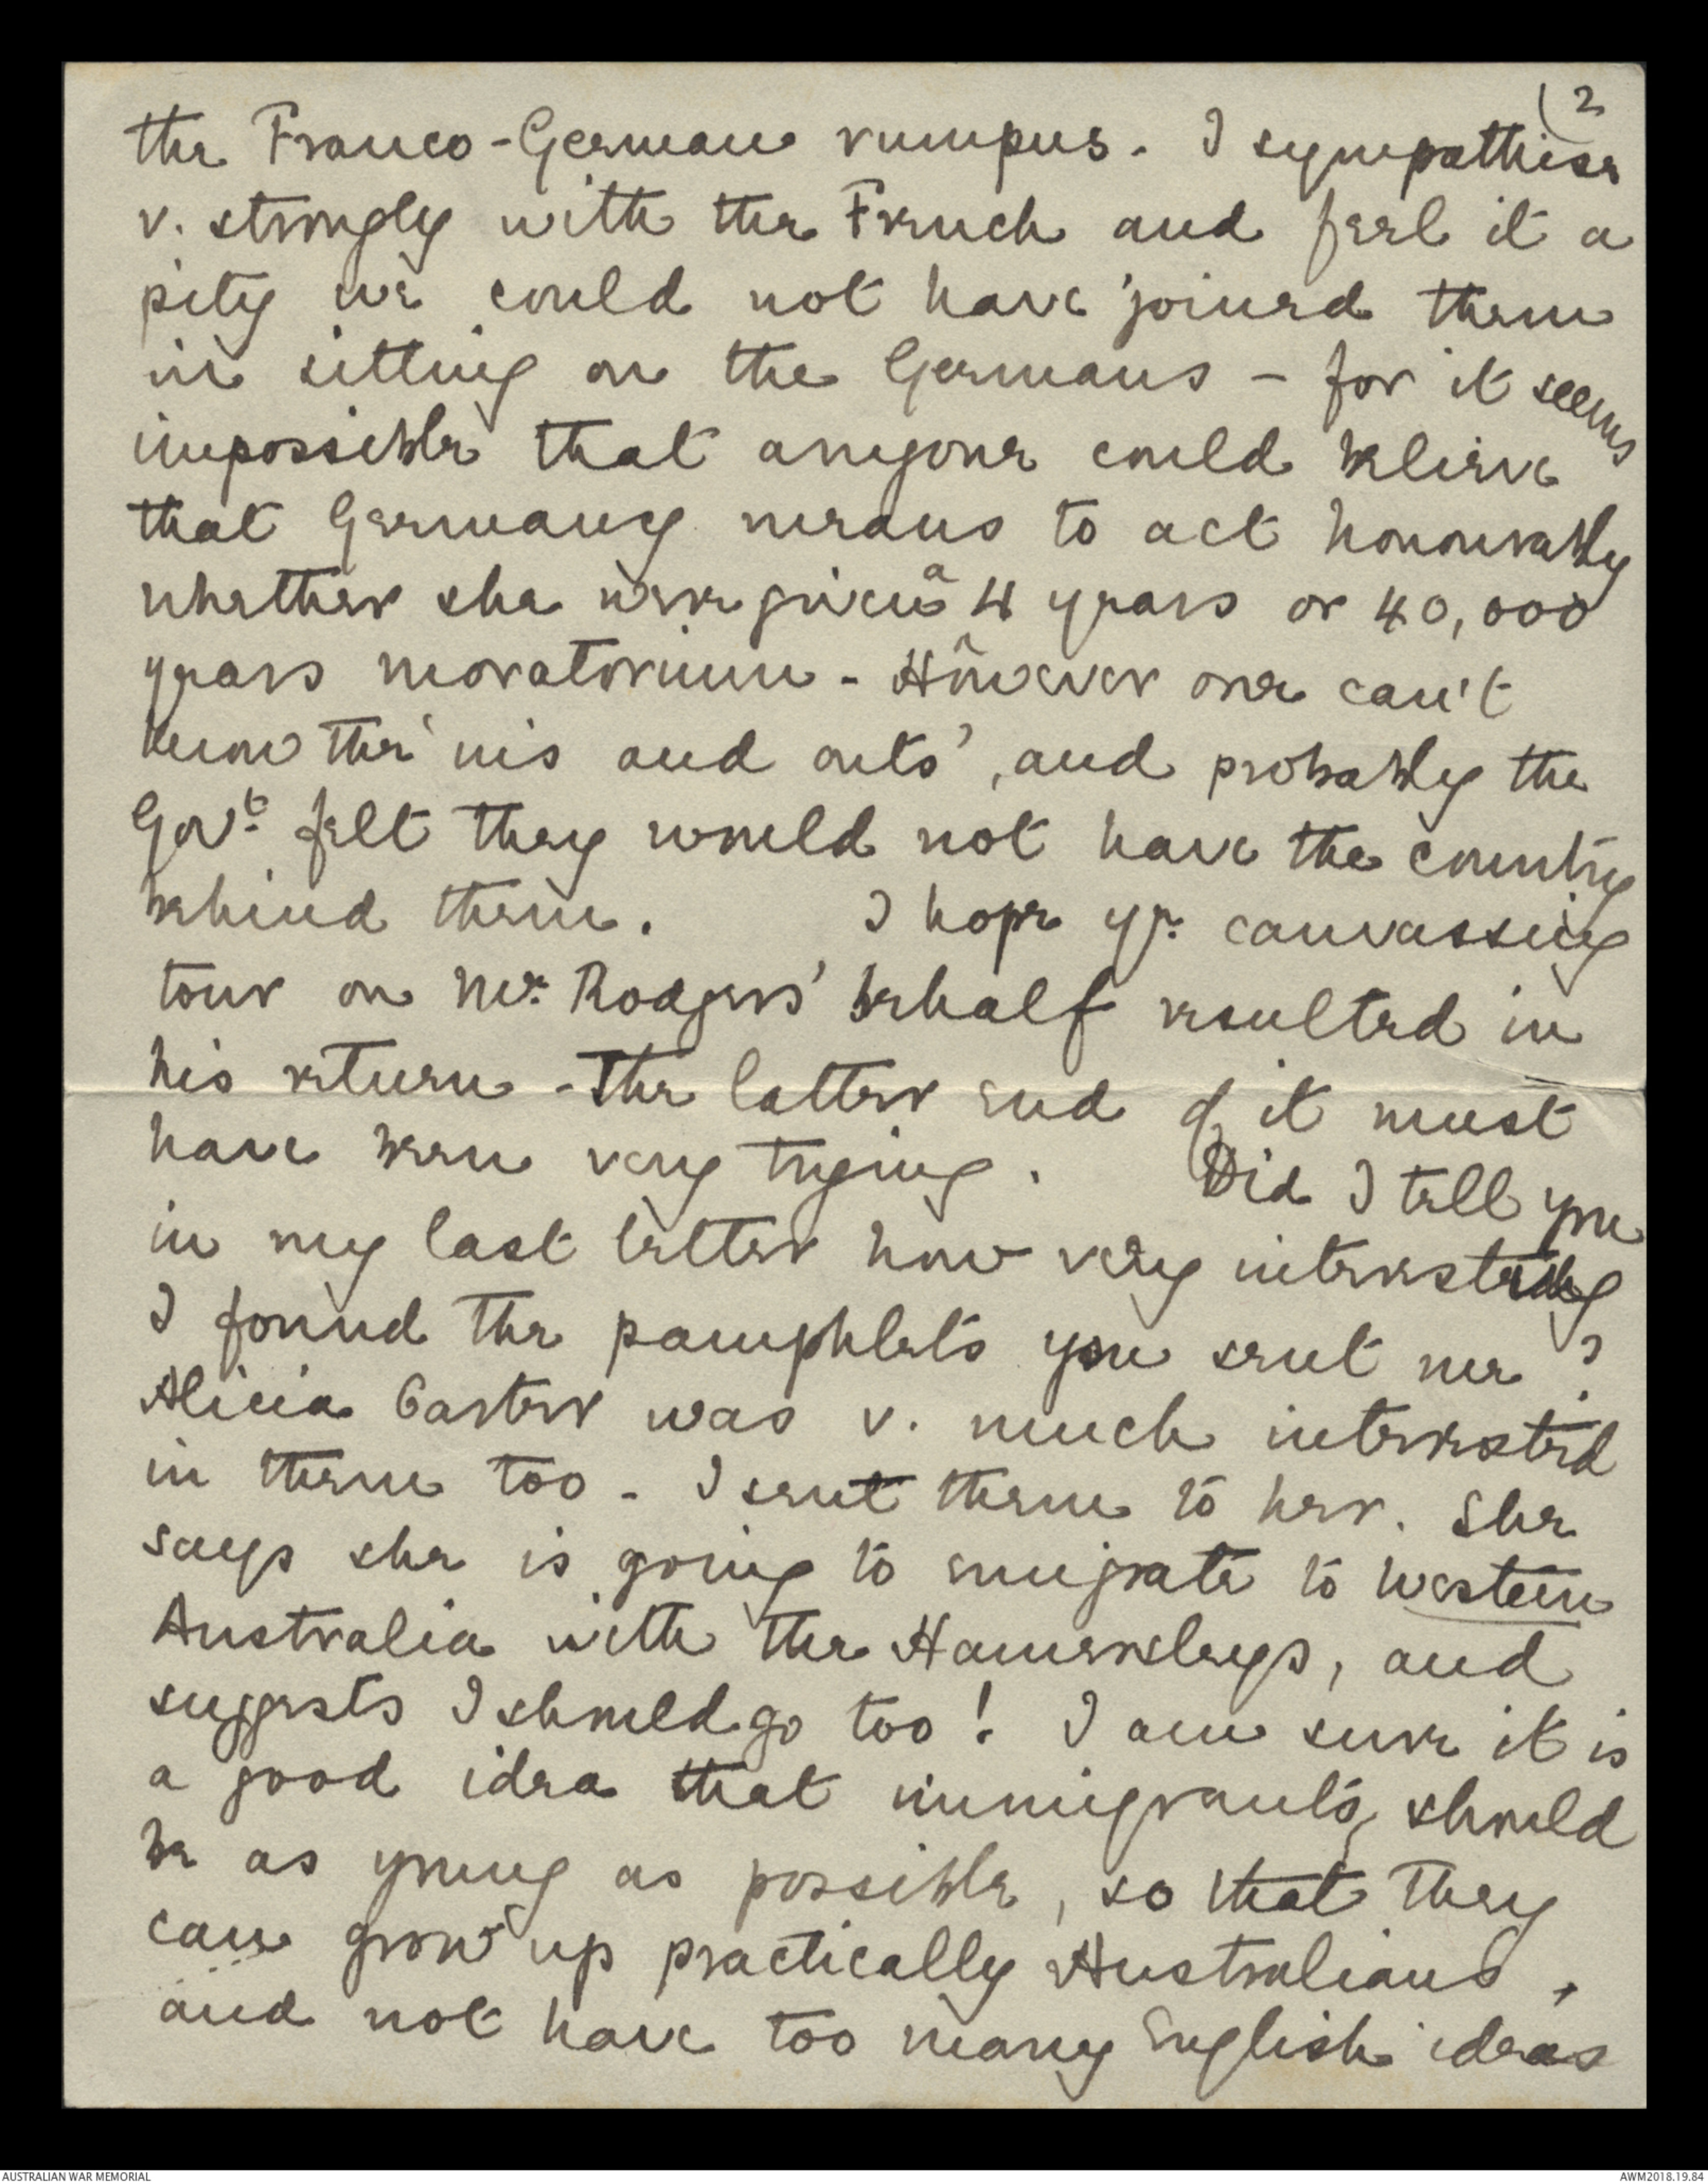 (2
the Franco-German rumpus. I sympathise
v. strongly with the French and feel it a
pity we could not have joined them
in sitting on the Germans - for it seems
impossible that anyone could believe
that Germany means to act honourably
whether she were given a 4 years or 40,000
years moratorium - However one can't
know the 'ins and outs', and probably the
Govt. felt they would not have the country
behind them. I hope yr. canvassing
tour on Mr. Rodgers' behalf resulted in
his return - The latter end of it must
have been very trying. Did I tell you
in my last letter how very interesting
I found the pamphlets you sent me?
Alicia was v. much interested
in them too - I sent them to her. She
says she is going to emigrate to Western
Australia with the Hamersleys, and
suggests I should go too! I am sure it is
a good idea that immigrants should
be as young as possible, so that they
can grow up practically Australians,
and not have too many English ideas
AUSTRALIAN WAR MEMORIAL
AWM2018.19.84